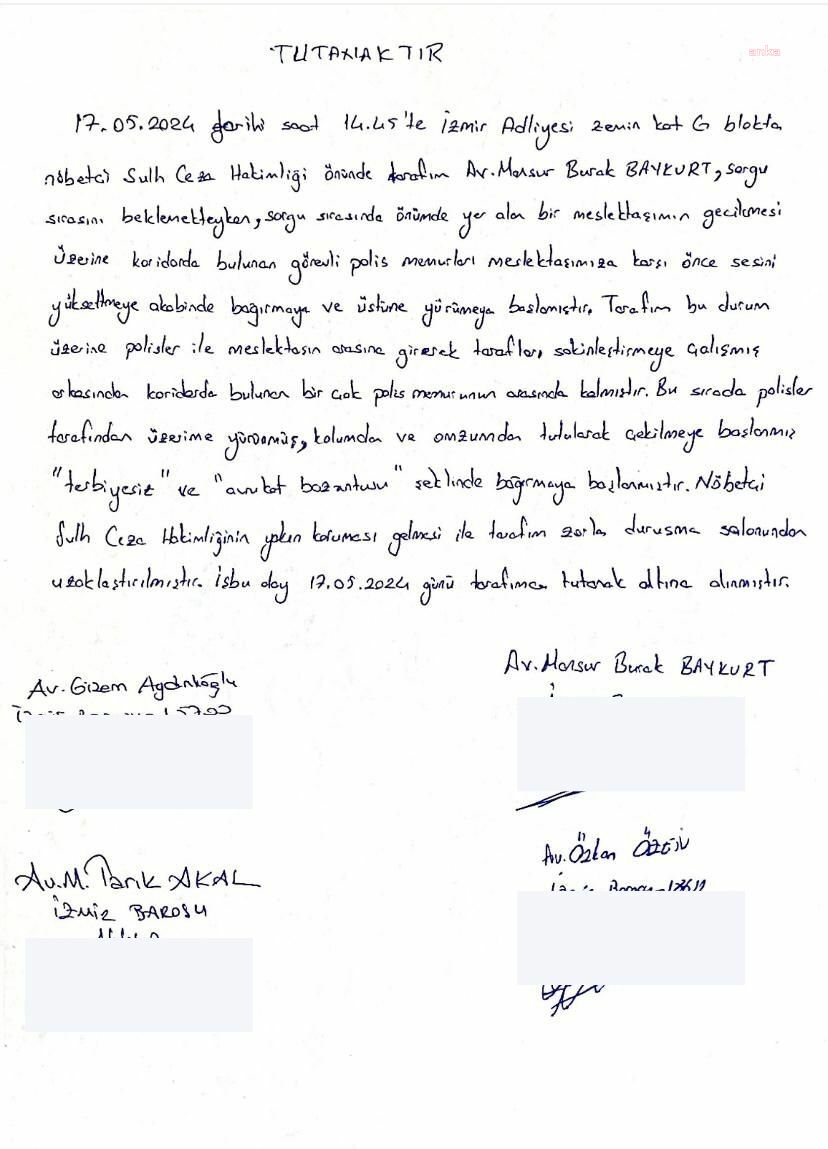 TUTANAKTIR
anka
17.05.2024 tarihi saat 14.45'te İzmir Adliyesi zemin kat G blokta
nöbetci Sulh Ceza Hakimliği önünde tarafım Av. Mansur Burak BAYKURT, sorgu
sırasını beklemekteyken, sorgu sırasında önümde yer alan bir meslektaşımın gecikmesi
üzerine koridorda bulunan görevli polis memurları meslektaşımıza karşı önce sesini
yükseltmeye akabinde bağırmaya ve üstüne yürümeye başlamıştır. Tarafım bu durum
üzerine polisler ile meslektaşın arasına girerek tarafları sakinleştirmeye çalışmış
arkasından koridorda bulunan bir çok polis memurunun arasında kalmıştır. Bu sırada polisler
tarafından üzerime yürünmüş, kolumdan ve omzumdan tutularak çekilmeye başlanmış
"terbiyesiz" ve "avukat bozuntusu" şeklinde bağırmaya başlanmıştır. Nöbetci
Sulh Ceza Hakimliğinin yakın koruması gelmesi ile tarafım zorla duruşma salonundan
uzaklaştırılmıştır. İşbu olay 17.05.2024 günü tarafımca tutanak altına alınmıştır.
Av. Mansur Burak BAYKURT
Av. Gizem Aydınlıoğlu
Av. Özkan
Av. M. Tarık AKAL
İZMİR BAROSU